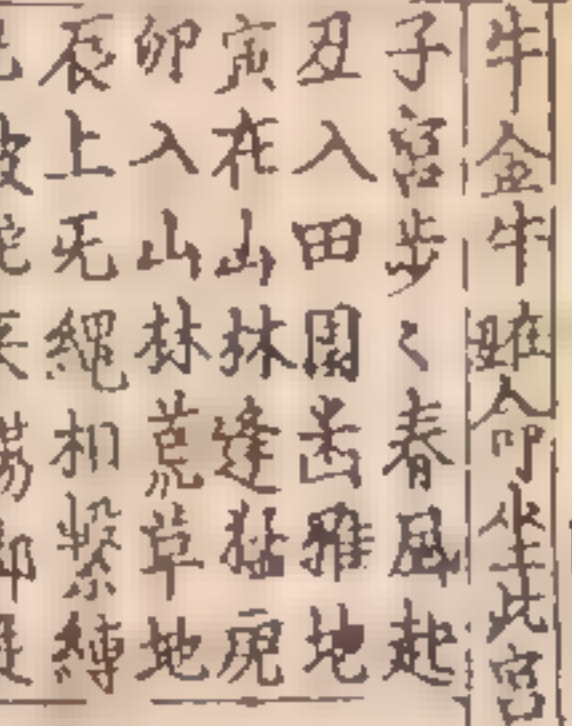 牛金牛雖命坐此宮
子宮步々春風起
丑入田園雅地
寅在山林逢猛虎
卯入山林荒草地
辰上无繩相繫縛